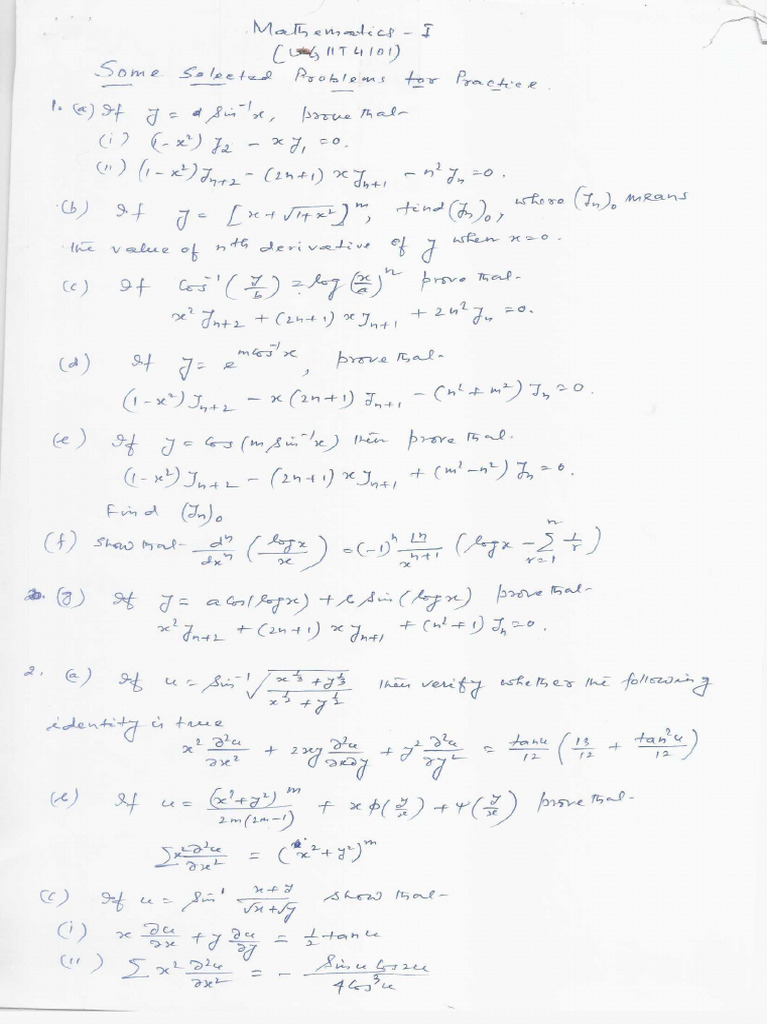 Mathematics - I
(UG IIT 4101)
Some Selected Problems for Practice.
1. (a) If y = a sin⁻¹x, prove that-
(i) (1-x²) y₂ - x y₁ = 0.
(ii) (1-x²)yₙ₊₂ - (2n+1) x yₙ₊₁ - n² yₙ = 0.
(b) If y = [x + √(1+x²)]ᵐ, find (yₙ)₀, where (yₙ)₀ means
the value of nth derivative of y when x=0.
(c) If cos⁻¹(y/b) = log(x/a)ⁿ prove that-
x² yₙ₊₂ + (2n+1) x yₙ₊₁ + 2n² yₙ = 0.
(d) If y = e^(m cos⁻¹x), prove that-
(1-x²) yₙ₊₂ - x(2n+1) yₙ₊₁ - (n²+m²) yₙ = 0.
(e) If y = cos(m sin⁻¹x) then prove that-
(1-x²) yₙ₊₂ - (2n+1) x yₙ₊₁ + (m²-n²) yₙ = 0.
Find (yₙ)₀
(f) show that- dⁿ/dxⁿ (log x / x) = (-1)ⁿ ∟n/xⁿ⁺¹ (log x - Σ_{r=1}^{n} 1/r)
(g) If y = a cos(log x) + b sin(log x) prove that-
x² yₙ₊₂ + (2n+1) x yₙ₊₁ + (n²+1) yₙ = 0.
2. (a) If u = sin⁻¹ √((x^(1/3) + y^(1/3))/(x^(1/2) + y^(1/2))) then verify whether the following
identity is true
x² ∂²u/∂x² + 2xy ∂²u/∂x∂y + y² ∂²u/∂y² = tan u/12 (13/12 + tan²u/12)
(b) If u = (x²+y²)ᵐ/2m(2m-1) + x φ(y/x) + ψ(y/x) prove that-
Σ x² ∂²u/∂x² = (x²+y²)ᵐ
(c) If u = sin⁻¹ (x+y)/(√x+√y) show that-
(i) x ∂u/∂x + y ∂u/∂y = 1/2 tan u
(ii) Σ x² ∂²u/∂x² = - sin u cos 2u/4cos³u